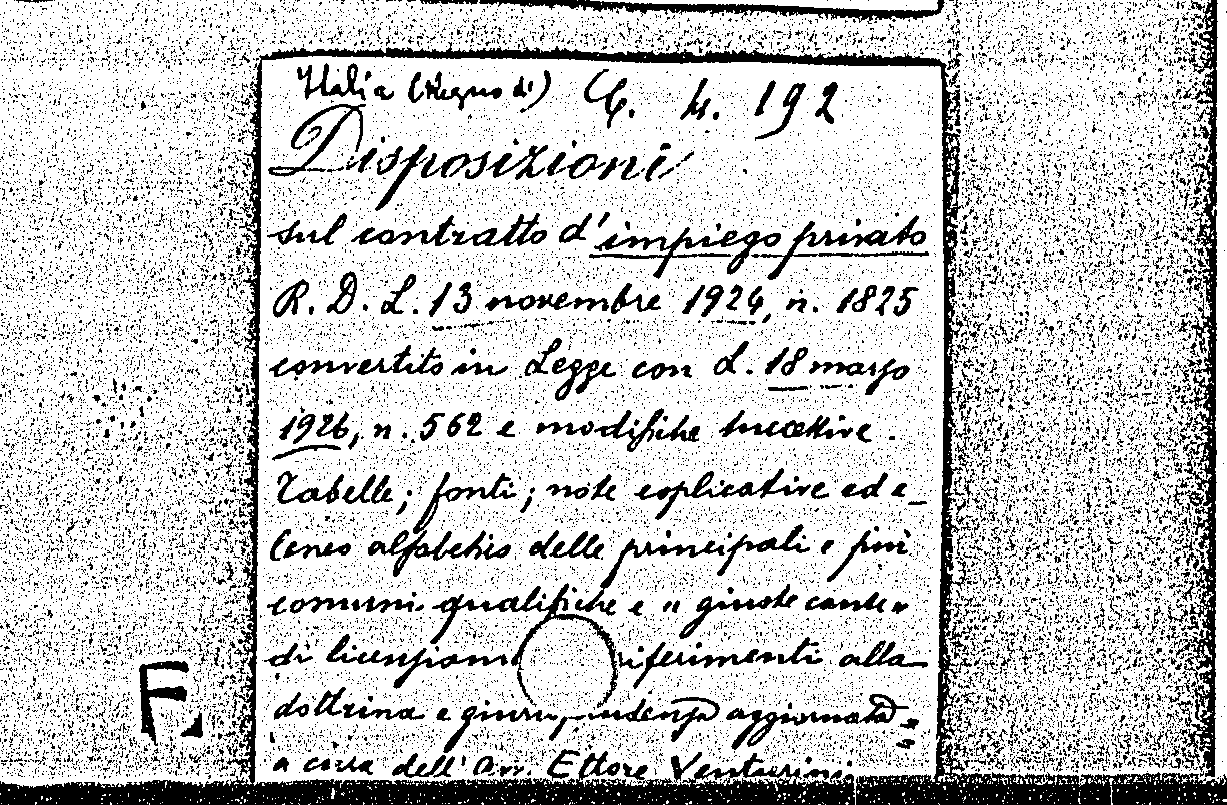 Italia (Regno di) C. 4. 192
Disposizioni
sul contratto d'impiego privato
R. D. L. 13 novembre 1924, n. 1825
convertito in Legge con L. 18 marzo
1926, n. 562 e modifiche successive.
Tabelle; fonti; note esplicative ed e_
lenco alfabetico delle principali e più
comuni qualifiche e "giuste cause"
di licenziam riferimenti alla
dottrina e giuri udenza aggiornata =
a cura dell' Avv. Ettore Venturini
E